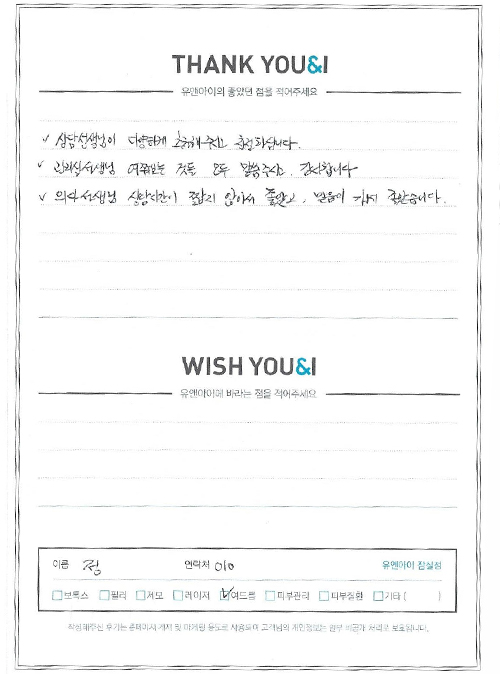 THANK YOU&I
유앤아이의 좋았던 점을 적어주세요
✓ 상담선생님이 다양하게 추천해주시고 친절하십니다.
✓ 선생님 여쭤보는 것들 모두 말씀주시고, 감사합니다
✓ 의사선생님 상담시간이 짧지 않아서 좋았고, 믿음이 가서 좋았습니다.
WISH YOU&I
유앤아이에 바라는 점을 적어주세요
이름 정 연락처 010 유앤아이 잠실점
보톡스 필러 제모 레이저 여드름 피부관리 피부질환 기타 ( )
작성해주신 후기는 홈페이지 게재 및 마케팅 용도로 사용되며 고객님의 개인정보는 일부 비공개 처리로 보호됩니다.